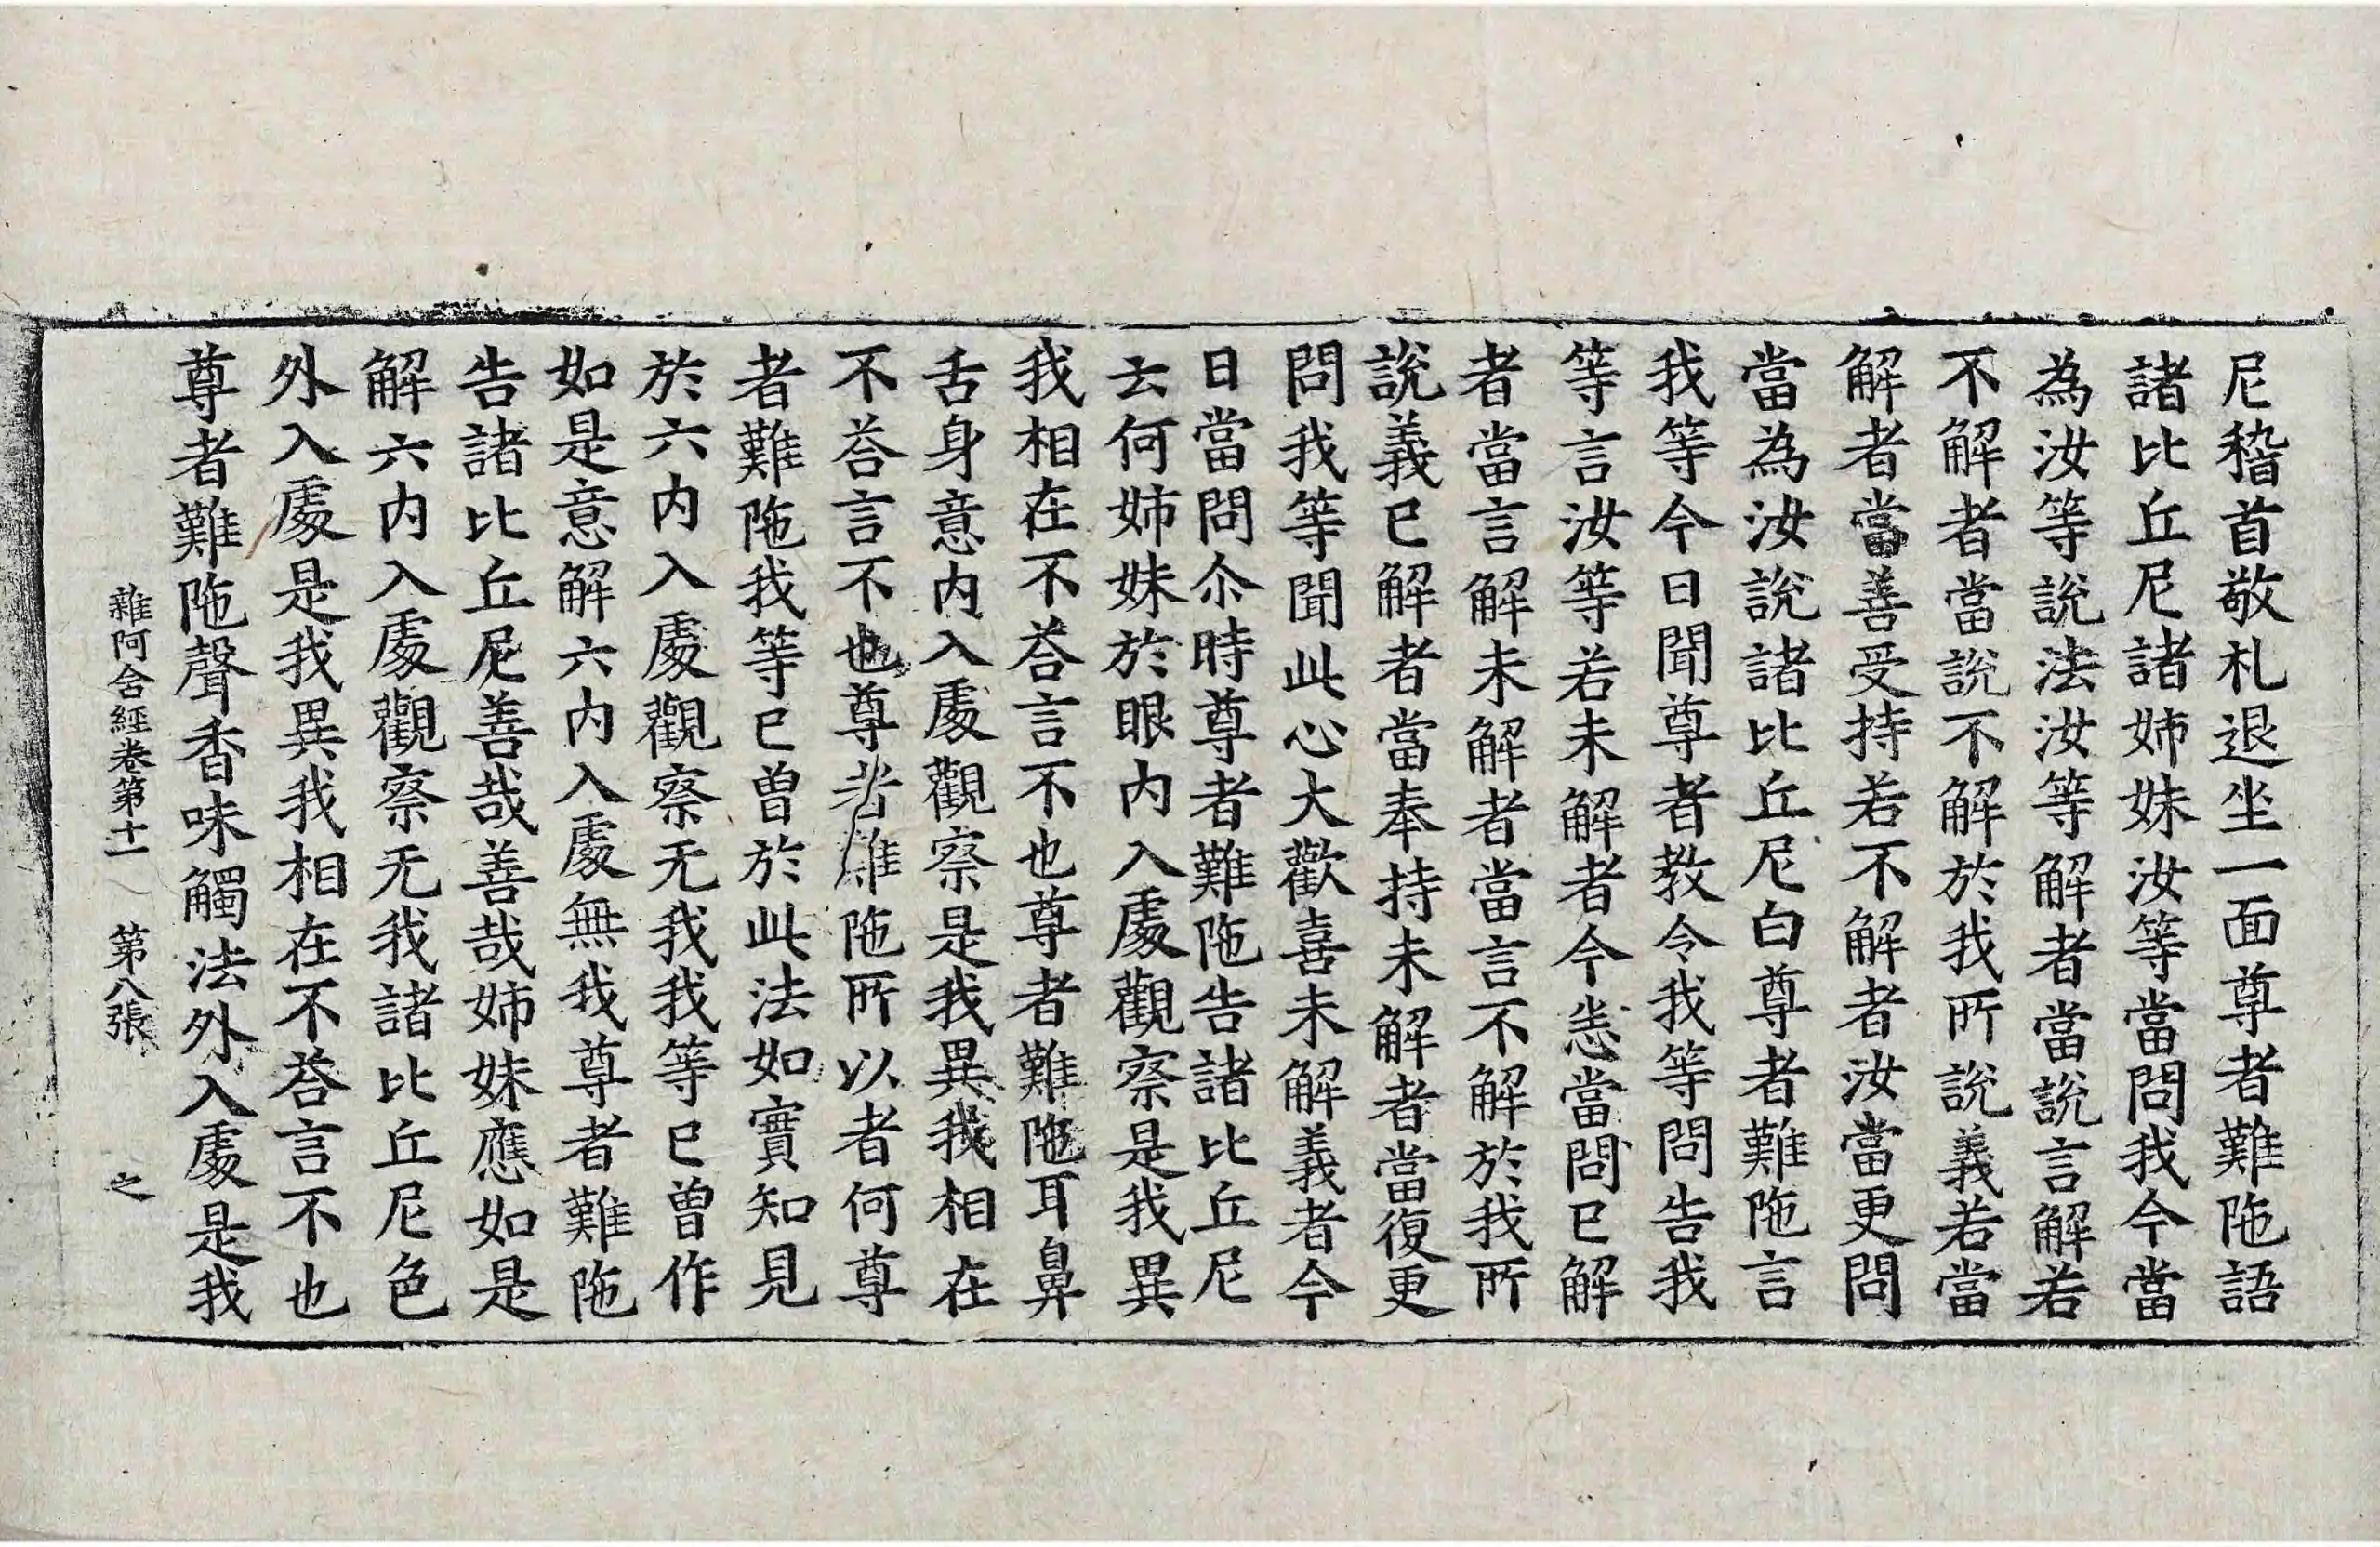 尼稽首敬礼退坐一面尊者難陁語
諸比丘尼諸姉妹汝等當問我今當
為汝等說法汝等解者當說言解若
不解者當說不解於我所說義若當
解者當善受持若不解者汝當更問
當為汝說諸比丘尼白尊者難陁言
我等今日聞尊者教令我等問告我
等言汝等若未解者今悉當問已解
者當言解未解者當言不解於我所
說義已解者當奉持未解者當復更
問我等聞此心大歡喜未解義者今
日當問尒時尊者難陁告諸比丘尼
云何姉妹於眼內入處觀察是我異
我相在不荅言不也尊者難陁耳鼻
舌身意內入處觀察是我異我相在
不荅言不也尊者難陁所以者何尊
者難陁我等已曾於此法如實知見
於六內入處觀察无我我等已曾作
如是意解六內入處無我尊者難陁
告諸比丘尼善哉善哉姉妹應如是
解六內入處觀察无我諸比丘尼色
外入處是我異我相在不荅言不也
尊者難陁聲香味觸法外入處是我
雜阿含經卷第十一 第八張 之